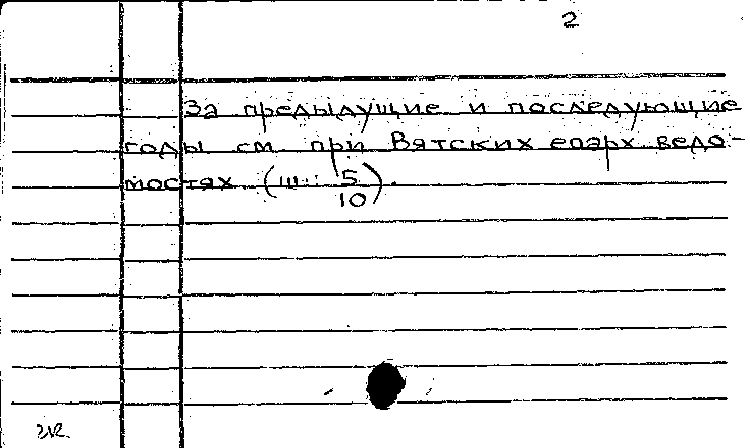 2
За предыдущие и последующие
годы см. при Вятских епарх ведо-
мостях. (ш: 5/10).